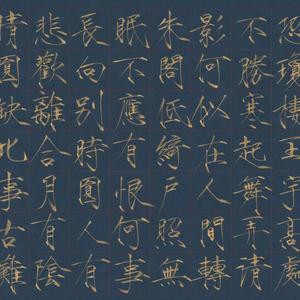 恐瓊樓玉宇高處
不勝寒起舞弄清
影何似在人間轉
朱閣低綺戶照無
眠不應有恨何事
長向別時圓人有
悲歡離合月有陰
晴圓缺此事古難